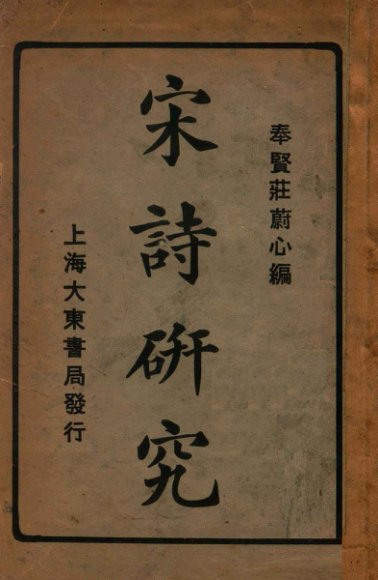 奉賢莊蔚心編
宋詩研究
上海大東書局發行